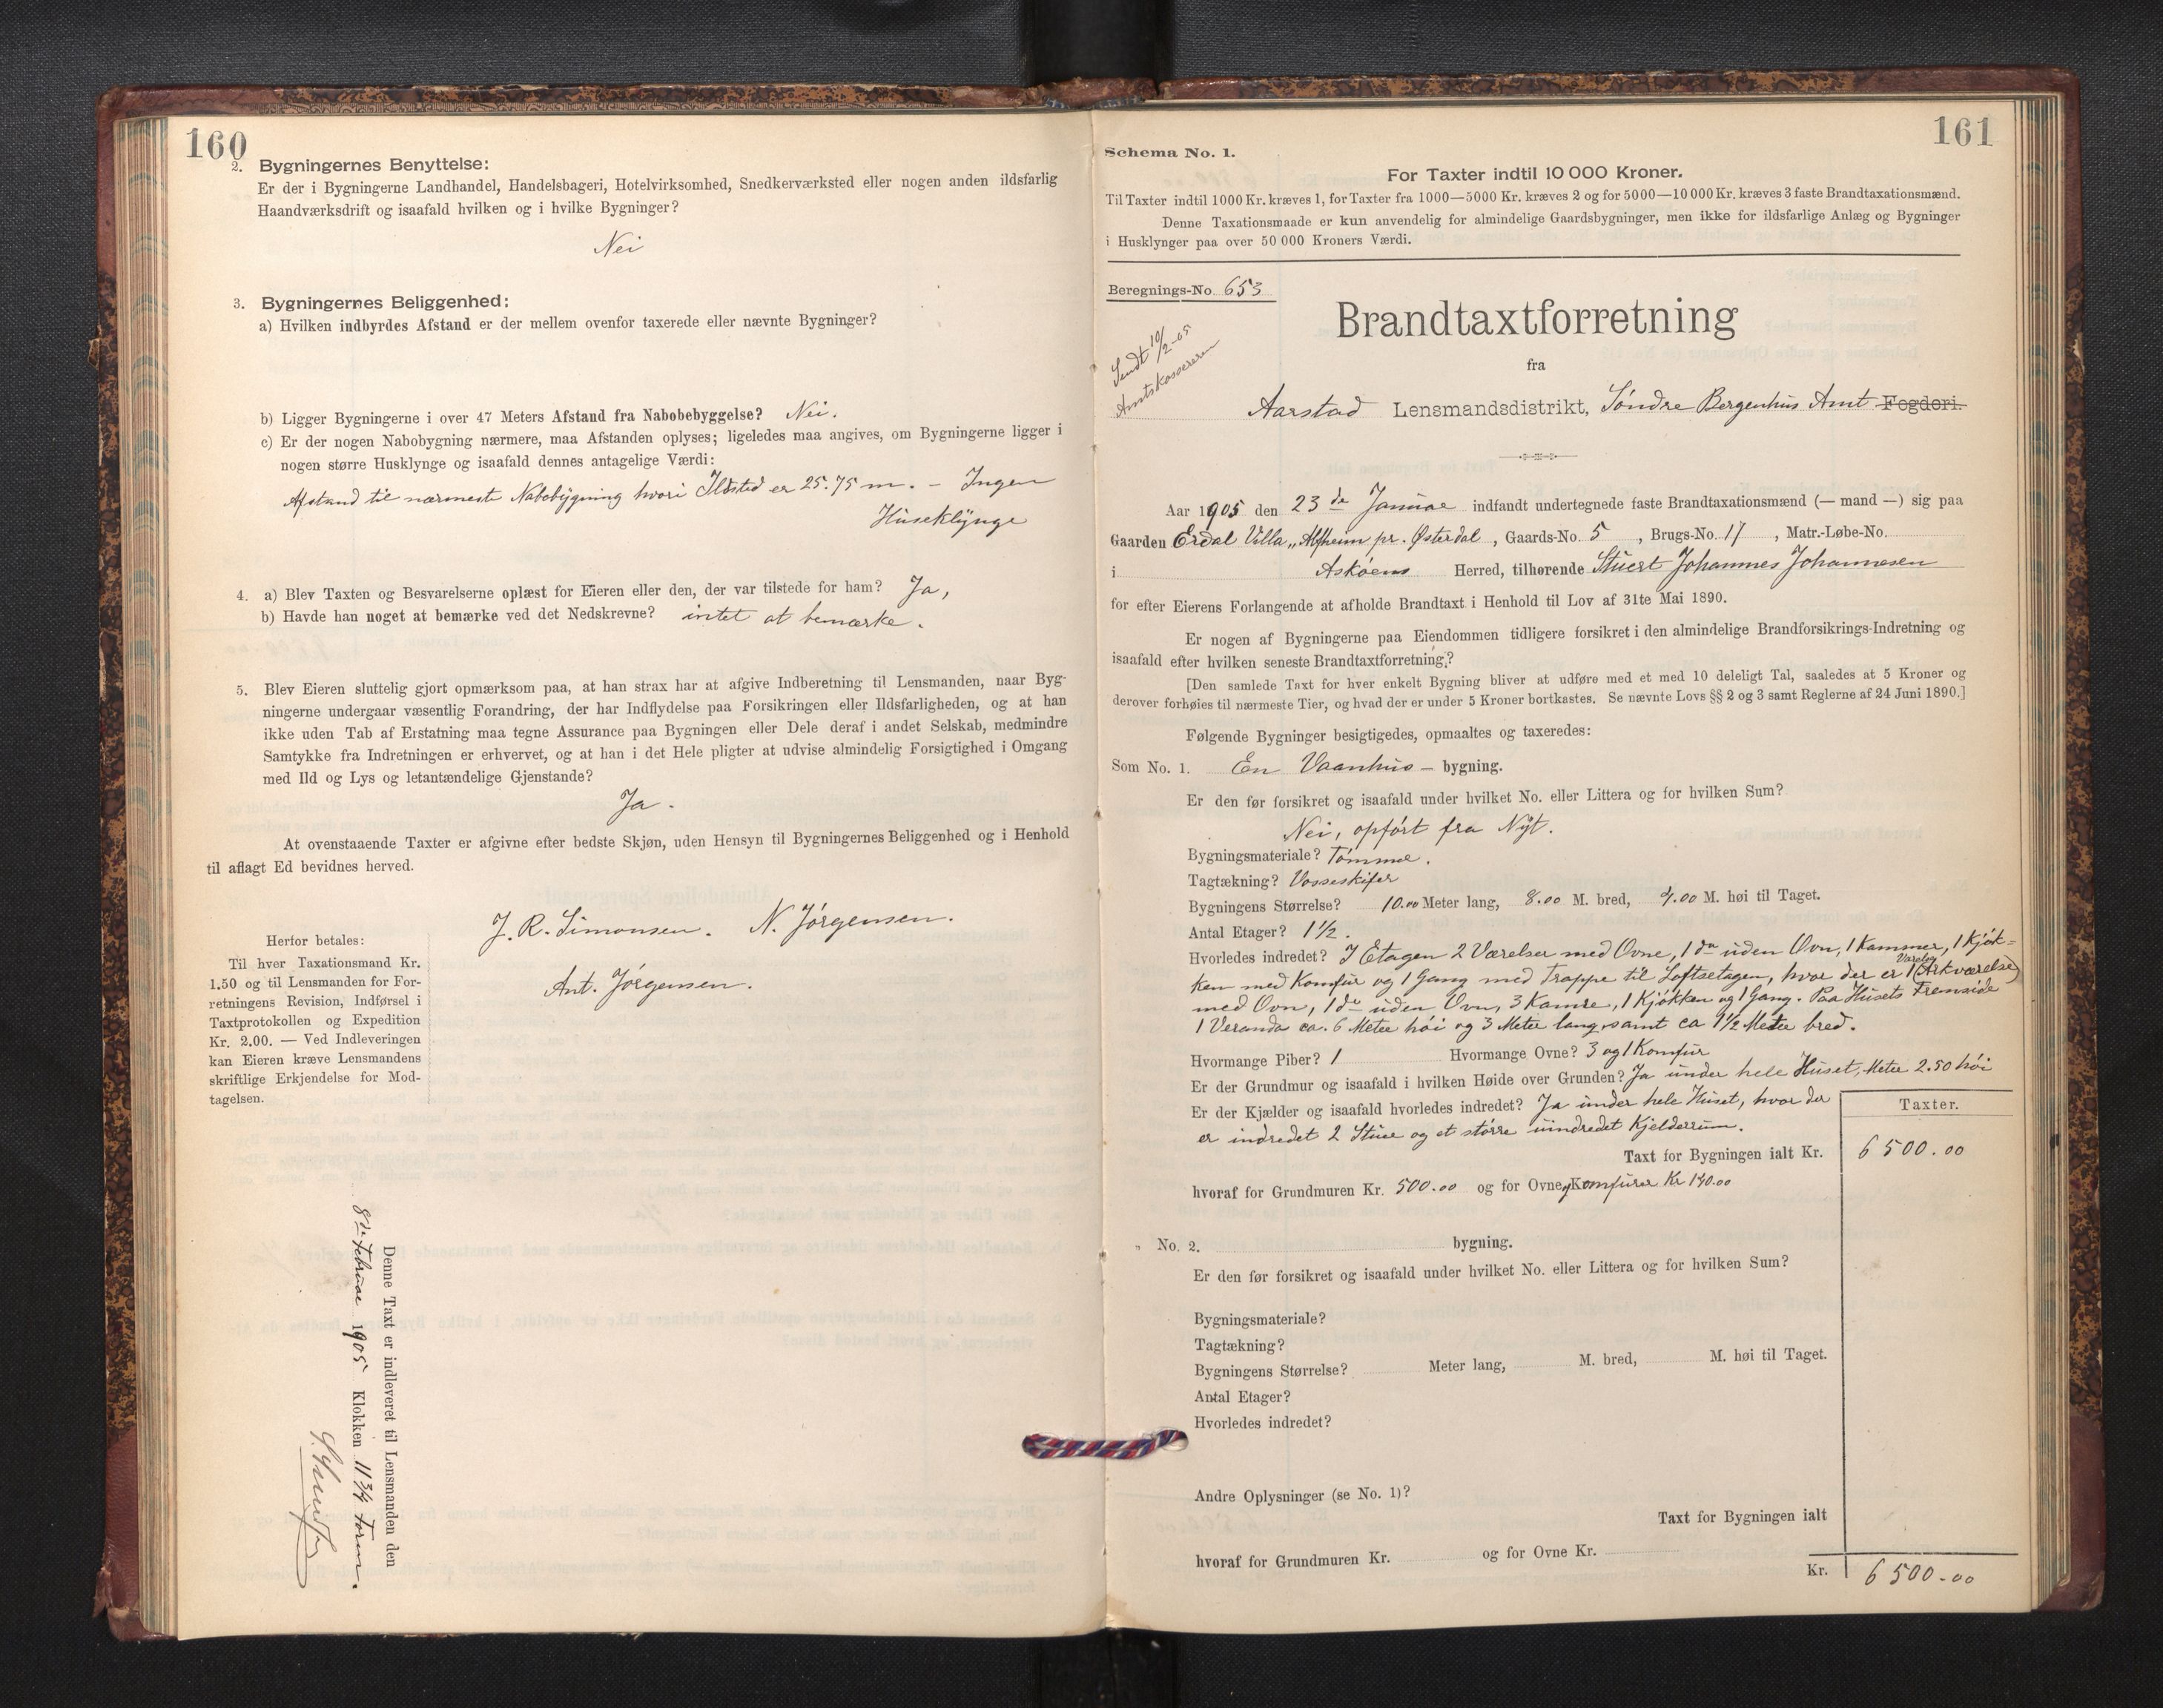 160
2. Bygningernes Benyttelse:
Er der i Bygningerne Landhandel, Handelsbageri, Hotelvirksomhed, Snedkerværksted eller nogen anden ildsfarlig
Haandværksdrift og isaafald hvilken og i hvilke Bygninger?
Nei
3. Bygningernes Beliggenhed:
a) Hvilken indbyrdes Afstand er der mellem ovenfor taxerede eller nævnte Bygninger?
b) Ligger Bygningerne i over 47 Meters Afstand fra Nabobebyggelse? Nei.
c) Er der nogen Nabobygning nærmere, maa Afstanden oplyses; ligeledes maa angives, om Bygningerne ligger i
nogen større Husklynge og isaafald dennes antagelige Værdi:
Afstand til nærmeste Nabobygning hvori Ildsted er 25.75 m. – Ingen
Huseklynge
4. a) Blev Taxten og Besvarelserne oplæst for Eieren eller den, der var tilstede for ham? Ja,
b) Havde han noget at bemærke ved det Nedskrevne? intet at bemærke.
5. Blev Eieren sluttelig gjort opmærksom paa, at han strax har at afgive Indberetning til Lensmanden, naar Byg-
ningerne undergaar væsentlig Forandring, der har Indflydelse paa Forsikringen eller Ildsfarligheden, og at han
ikke uden Tab af Erstatning maa tegne Assurance paa Bygningen eller Dele deraf i andet Selskab, medmindre
Samtykke fra Indretningen er erhvervet, og at han i det Hele pligter at udvise almindelig Forsigtighed i Omgang
med Ild og Lys og letantændelige Gjenstande?
Ja.
At ovenstaaende Taxter er afgivne efter bedste Skjøn, uden Hensyn til Bygningernes Beliggenhed og i Henhold
til aflagt Ed bevidnes herved.
J. R. Simonsen. N. Jörgensen.
Ant. Jörgensen.
Herfor betales:
Til hver Taxationsmand Kr.
1.50 og til Lensmanden for For-
retningens Revision, Indførsel i
Taxtprotokollen og Expedition
Kr. 2.00. — Ved Indleveringen
kan Eieren kræve Lensmandens
skriftlige Erkjendelse for Mod-
tagelsen.
Denne Taxt er indleveret til Lensmanden den
8de Februar 1905 Klokken 11 3/4 Form.
161
Schema No. 1.
For Taxter indtil 10 000 Kroner.
Til Taxter indtil 1000 Kr. kræves 1, for Taxter fra 1000—5000 Kr. kræves 2 og for 5000—10 000 Kr. kræves 3 faste Brandtaxationsmænd.
Denne Taxationsmaade er kun anvendelig for almindelige Gaardsbygninger, men ikke for ildsfarlige Anlæg og Bygninger
i Husklynger paa over 50 000 Kroners Værdi.
Beregnings-No. 653
Sendt 10/2-05
Amtskassereren
Brandtaxtforretning
fra
Aarstad Lensmandsdistrikt, Söndre Bergenhus Amt Fogderi.
Aar 1905 den 23de Januar indfandt undertegnede faste Brandtaxationsmænd (— mand —) sig paa
Gaarden Erdal Villa „Alfheim pr. Østerdal, Gaards-No. 5, Brugs-No. 17, Matr.-Løbe-No.
i Asköens Herred, tilhørende Stuert Johannes Johannesen
for efter Eierens Forlangende at afholde Brandtaxt i Henhold til Lov af 31te Mai 1890.
Er nogen af Bygningerne paa Eiendommen tidligere forsikret i den almindelige Brandforsikrings-Indretning og
isaafald efter hvilken seneste Brandtaxtforretning?
[Den samlede Taxt for hver enkelt Bygning bliver at udføre med et med 10 deleligt Tal, saaledes at 5 Kroner og
derover forhøies til nærmeste Tier, og hvad der er under 5 Kroner bortkastes. Se nævnte Lovs §§ 2 og 3 samt Reglerne af 24 Juni 1890.]
Følgende Bygninger besigtigedes, opmaaltes og taxeredes:
Som No. 1. En Vaanhus – bygning.
Er den før forsikret og isaafald under hvilket No. eller Littera og for hvilken Sum?
Nei, opfört fra Nyt.
Bygningsmateriale? Tömmer.
Tagtækning? Vosseskifer
Bygningens Størrelse? 10.00 Meter lang, 8.00 M. bred, 4.00 M. høi til Taget.
Antal Etager? 1 1/2.
Hvorledes indredet? I Etagen 2 Værelser med Ovne, 1 do uden Ovn, 1 Kammer, 1 Kjök-
ken med Komfur og 1 Gang med Trappe til Loftsetagen, hvor der er 1 Værelse (Arkværelse)
med Ovn, 1 do uden Ovn, 3 Kamre, 1 Kjökken og 1 Gang. Paa Husets Fremside
1 Veranda ca. 6 Meter höi og 3 Meter lang, samt ca 1 1/2 Meter bred.
Hvormange Piber? 1 Hvormange Ovne? 3 og 1 Komfur
Er der Grundmur og isaafald i hvilken Høide over Grunden? Ja under hele Huset, Meter 2.50 höi
Er der Kjælder og isaafald hvorledes indredet? Ja under hele Huset, hvor der
er indredet 2 Stuer og et större uindredet Kjelderrum.
Taxter.
Taxt for Bygningen ialt Kr. 6 500.00
hvoraf for Grundmuren Kr. 500.00 og for Ovne og Komfurer Kr 140.00
„ No. 2. bygning.
Er den før forsikret og isaafald under hvilket No. eller Littera og for hvilken Sum?
Bygningsmateriale?
Tagtækning?
Bygningens Størrelse? Meter lang, M. bred, M. høi til Taget.
Antal Etager?
Hvorledes indredet?
Andre Oplysninger (se No. 1)?
Taxt for Bygningen ialt
hvoraf for Grundmuren Kr. og for Ovne Kr.
Kr. 6 500.00